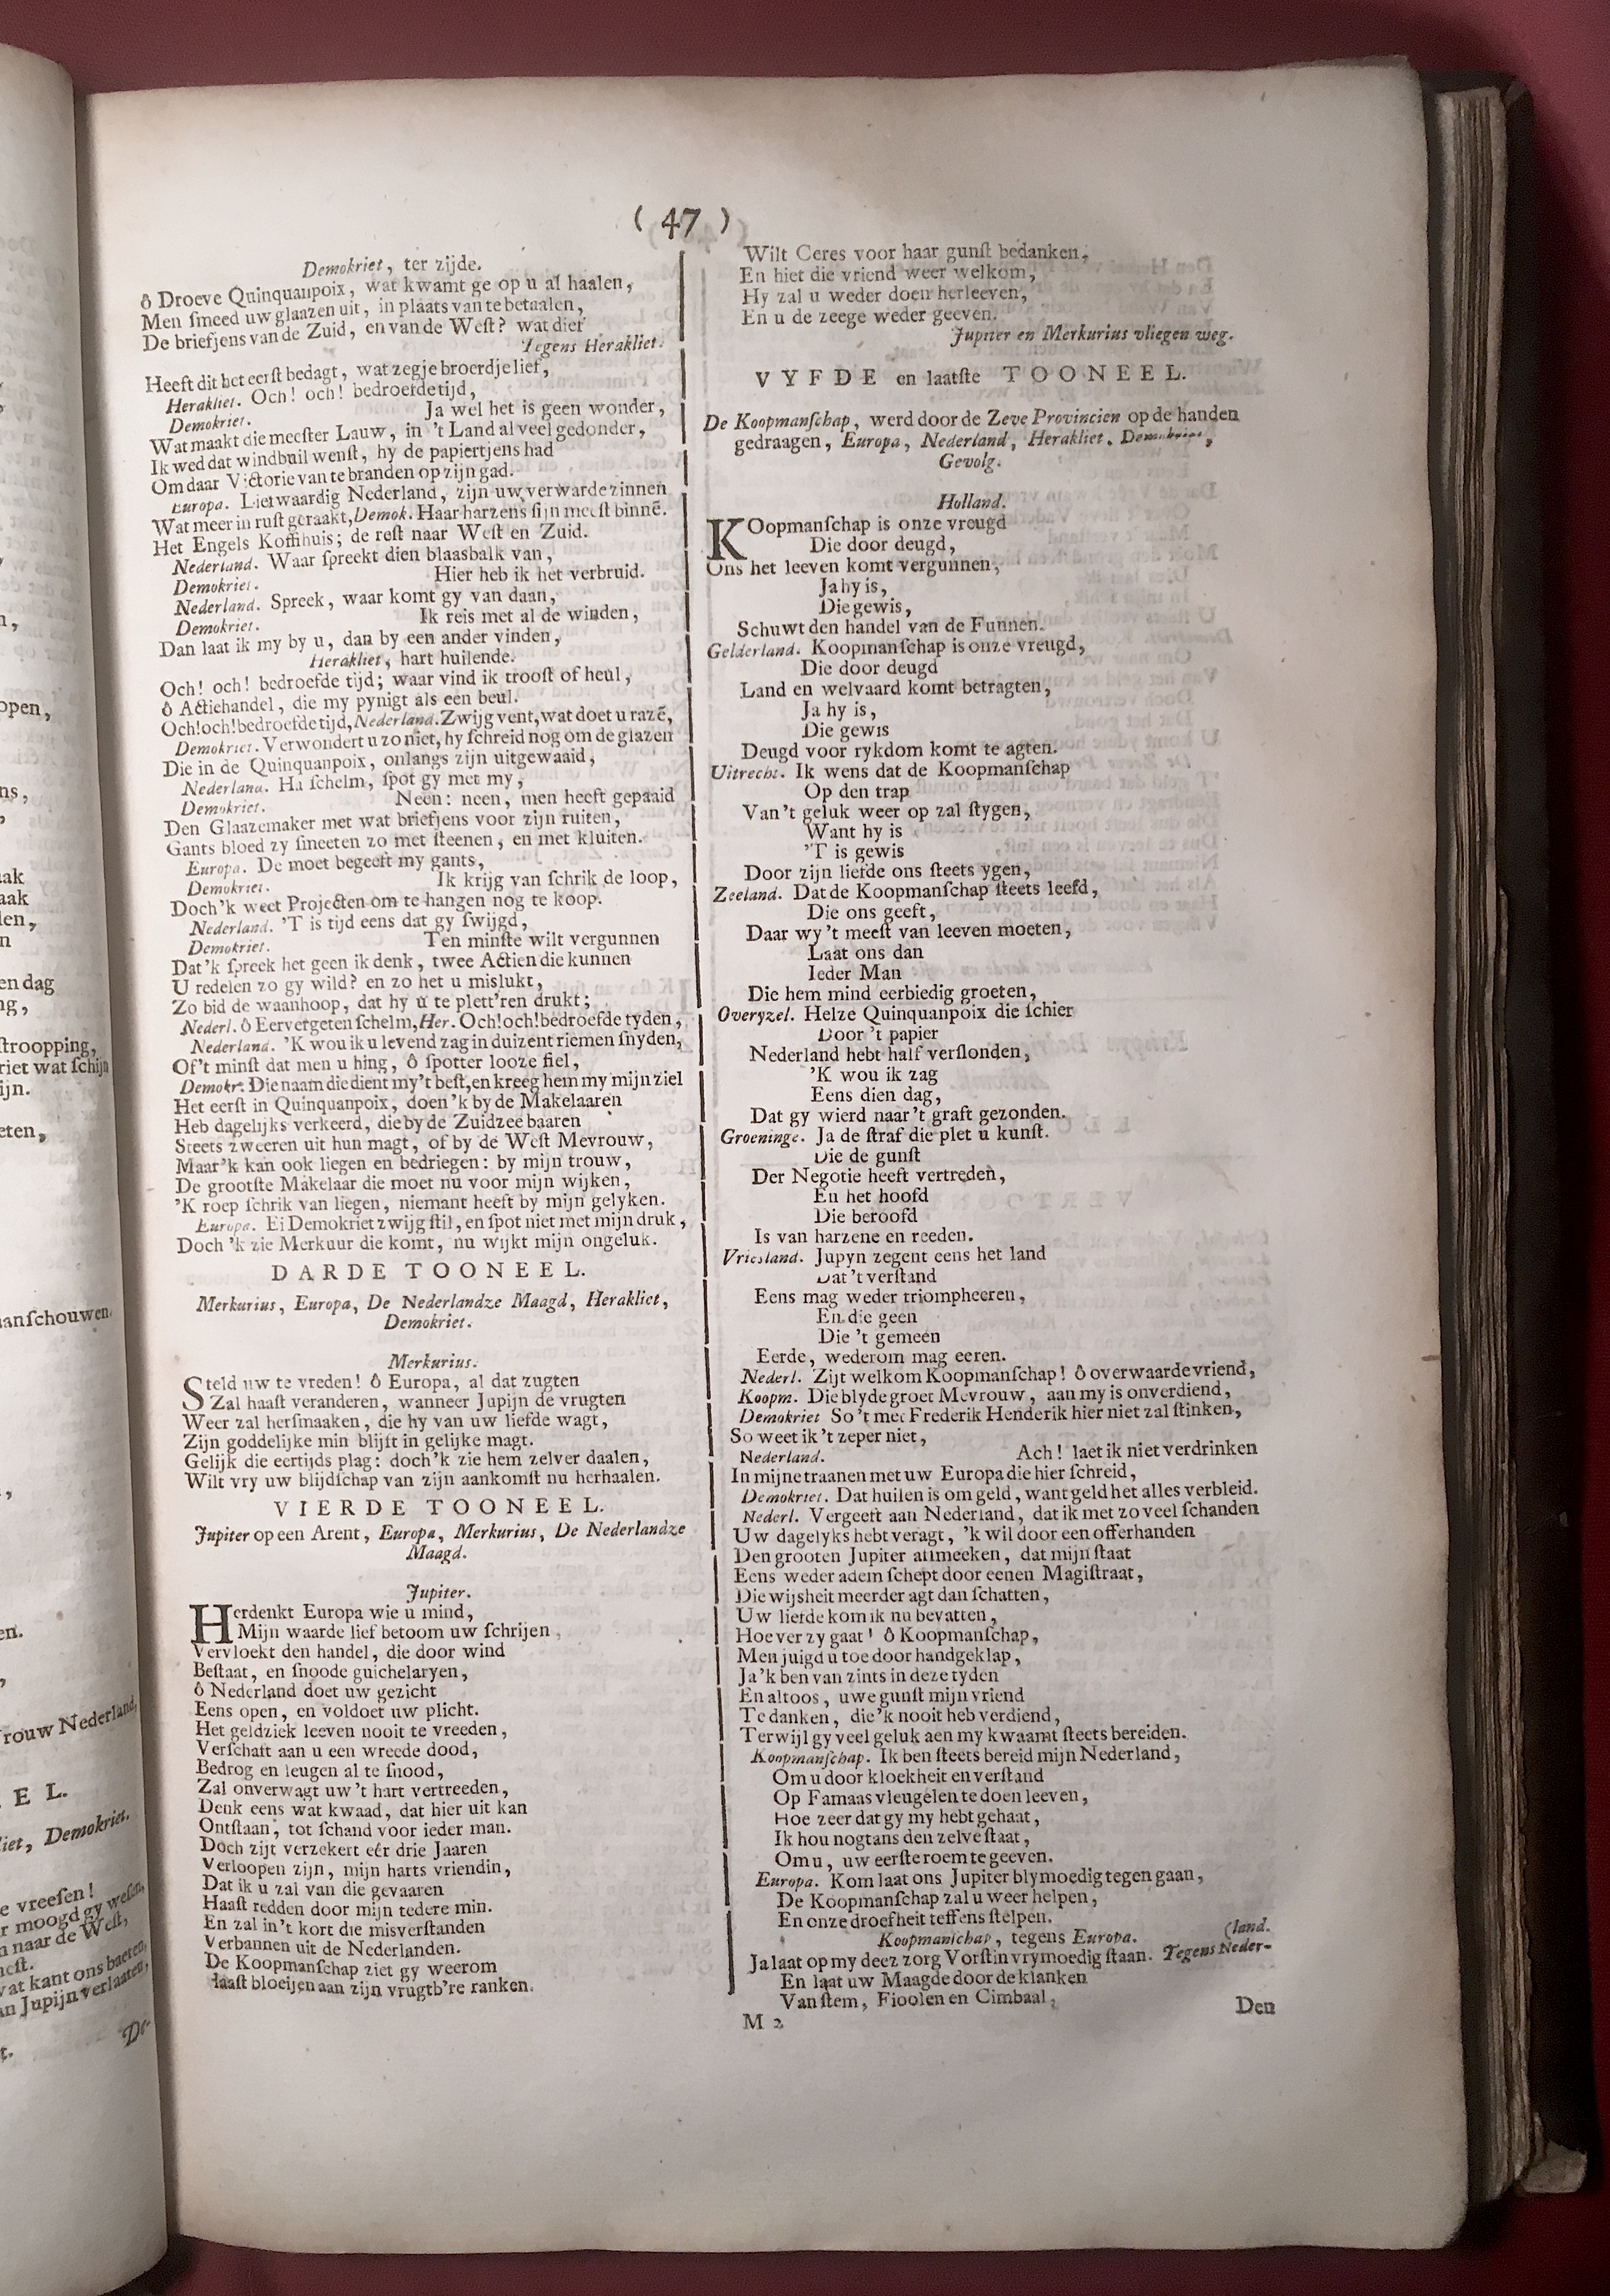 ( 47 )
Demokriet, ter zijde.
ô Droeve Quinquanpoix, wat kwamt ge op u al haalen,
Men ſmeed uw glaazen uit, in plaats van te betaalen,
De briefjens van de Zuid, en van de Weſt? wat dief
Tegens Herakliet.
Heeft dit het eerſt bedagt, wat zegje broerdje lief,
Herakliet. Och! och! bedroefde tijd,
Demokriet. Ja wel het is geen wonder,
Wat maakt die meeſter Lauw, in 't Land al veel gedonder,
Ik wed dat windbuil wenſt, hy de papiertjens had
Om daar Victorie van te branden op zijn gad.
Europa. Liefwaardig Nederland, zijn uw verwarde zinnen
Wat meer in ruſt geraakt, Demok. Haar harzens ſijn meeſt binnē.
Het Engels Koffihuis; de reſt naar Weſt en Zuid.
Nederland. Waar ſpreekt dien blaasbalk van,
Demokriet. Hier heb ik het verbruid.
Nederland. Spreek, waar komt gy van daan,
Demokriet. Ik reis met al de winden,
Dan laat ik my by u, dan by een ander vinden,
Herakliet, hart huilende.
Och! och! bedroefde tijd; waar vind ik trooſt of heul,
ô Actiehandel, die my pynigt als een beul.
Och! och! bedroefde tijd, Nederland. Zwijg vent, wat doet u razē,
Demokriet. Verwondert u zo niet, hy ſchreid nog om de glazen
Die in de Quinquanpoix, onlangs zijn uitgewaaid,
Nederland. Ha ſchelm, ſpot gy met my,
Demokriet. Neen: neen, men heeft gepaaid
Den Glaazemaker met wat briefjens voor zijn ruiten,
Gants bloed zy ſmeeten zo met ſteenen, en met kluiten.
Europa. De moet begeeft my gants,
Demokriet. Ik krijg van ſchrik de loop,
Doch 'k weet Projecten om te hangen nog te koop.
Nederland. 'T is tijd eens dat gy ſwijgd,
Demokriet. Ten minſte wilt vergunnen
Dat 'k ſpreek het geen ik denk, twee Actien die kunnen
U redelen zo gy wild? en zo het u mislukt,
Zo bid de waanhoop, dat hy u te plett'ren drukt;
Nederl. ô Eervergeten ſchelm, Her. Och! och! bedroefde tyden,
Nederland. 'K wou ik u levend zag in duizent riemen ſnyden,
Of 't minſt dat men u hing, ô ſpotter looze fiel,
Demokr. Die naam die dient my 't beſt, en kreeg hem my mijn ziel
Het eerſt in Quinquanpoix, doen 'k by de Makelaaren
Heb dagelijks verkeerd, die by de Zuidzee baaren
Steets zweeren uit hun magt, of by de Weſt Mevrouw,
Maar 'k kan ook liegen en bedriegen: by mijn trouw,
De grootſte Makelaar die moet nu voor mijn wijken,
'K roep ſchrik van liegen, niemant heeft by mijn gelyken.
Europa. Ei Demokriet zwijg ſtil, en ſpot niet met mijn druk,
Doch 'k zie Merkuur die komt, nu wijkt mijn ongeluk.
DARDE TOONEEL.
Merkurius, Europa, De Nederlandze Maagd, Herakliet,
Demokriet.
Merkurius.
Steld uw te vreden! ô Europa, al dat zugten
Zal haaſt veranderen, wanneer Jupijn de vrugten
Weer zal herſmaaken, die hy van uw liefde wagt,
Zijn goddelijke min blijft in gelijke magt.
Gelijk die eertijds plag: doch 'k zie hem zelver daalen,
Wilt vry uw blijdſchap van zijn aankomſt nu herhaalen.
VIERDE TOONEEL.
Jupiter op een Arent, Europa, Merkurius, De Nederlandze
Maagd.
Jupiter.
Herdenkt Europa wie u mind,
Mijn waarde lief betoom uw ſchrijen,
Vervloekt den handel, die door wind
Beſtaat, en ſnoode guichelaryen,
ô Nederland doet uw gezicht
Eens open, en voldoet uw plicht.
Het geldziek leeven nooit te vreeden,
Verſchaft aan u een wreede dood,
Bedrog en leugen al te ſnood,
Zal onverwagt uw 't hart vertreeden,
Denk eens wat kwaad, dat hier uit kan
Ontſtaan, tot ſchand voor ieder man.
Doch zijt verzekert eér drie Jaaren
Verloopen zijn, mijn harts vriendin,
Dat ik u zal van die gevaaren
Haaſt redden door mijn tedere min.
En zal in 't kort die misverſtanden
Verbannen uit de Nederlanden.
De Koopmanſchap ziet gy weerom
Haaſt bloeijen aan zijn vrugtb're ranken.
Wilt Ceres voor haar gunſt bedanken,
En hiet die vriend weer welkom,
Hy zal u weder doen herleeven,
En u de zeege weder geeven.
Jupiter en Merkurius vliegen weg.
VYFDE en laatſte TOONEEL.
De Koopmanſchap, werd door de Zeve Provincien op de handen
gedraagen, Europa, Nederland, Herakliet, Demokriet,
Gevolg.
Holland.
KOopmanſchap is onze vreugd
Die door deugd,
Ons het leeven komt vergunnen,
Ja hy is,
Die gewis,
Schuwt den handel van de Funnen.
Gelderland. Koopmanſchap is onze vreugd,
Die door deugd
Land en welvaard komt betragten,
Ja hy is,
Die gewis
Deugd voor rykdom komt te agten.
Uitrecht. Ik wens dat de Koopmanſchap
Op den trap
Van 't geluk weer op zal ſtygen,
Want hy is
'T is gewis
Door zijn liefde ons ſteets ygen,
Zeeland. Dat de Koopmanſchap ſteets leefd,
Die ons geeft,
Daar wy 't meeſt van leeven moeten,
Laat ons dan
Ieder Man
Die hem mind eerbiedig groeten,
Overyzel. Helze Quinquanpoix die ſchier
Door 't papier
Nederland hebt half verſlonden,
'K wou ik zag
Eens dien dag,
Dat gy wierd naar 't graft gezonden.
Groeninge. Ja de ſtraf die plet u kunſt.
Die de gunſt
Der Negotie heeft vertreden,
En het hoofd
Die beroofd
Is van harzene en reeden.
Vriesland. Jupyn zegent eens het land
Dat 't verſtand
Eens mag weder triompheeren,
En die geen
Die 't gemeen
Eerde, wederom mag eeren.
Nederl. Zijt welkom Koopmanſchap! ô overwaarde vriend,
Koopm. Die blyde groet Mevrouw, aan my is onverdiend,
Demokriet So 't met Frederik Henderik hier niet zal ſtinken,
So weet ik 't zeper niet,
Nederland. Ach! laet ik niet verdrinken
In mijne traanen met uw Europa die hier ſchreid,
Demokriet. Dat huilen is om geld, want geld het alles verbleid.
Nederl. Vergeeft aan Nederland, dat ik met zo veel ſchanden
Uw dagelyks hebt veragt, 'k wil door een offerhanden
Den grooten Jupiter afſmeeken, dat mijn ſtaat
Eens weder adem ſchept door eenen Magiſtraat,
Die wijsheit meerder agt dan ſchatten,
Uw liefde kom ik nu bevatten,
Hoe ver zy gaat! ô Koopmanſchap,
Men juigd u toe door handgeklap,
Ja 'k ben van zints in deze tyden
En altoos, uwe gunſt mijn vriend
Te danken, die 'k nooit heb verdiend,
Terwijl gy veel geluk aen my kwaamt ſteets bereiden.
Koopmanſchap. Ik ben ſteets bereid mijn Nederland,
Om u door kloekheit en verſtand
Op Famaas vleugelen te doen leeven,
Hoe zeer dat gy my hebt gehaat,
Ik hou nogtans den zelve ſtaat,
Om u, uw eerſte roem te geeven.
Europa. Kom laat ons Jupiter blymoedig tegen gaan,
De Koopmanſchap zal u weer helpen,
En onze droefheit teffens ſtelpen.
Koopmanſchap, tegens Europa. (land.
Ja laat op my deez zorg Vorſtin vrymoedig ſtaan. Tegens Neder-
En laat uw Maagde door de klanken
Van ſtem, Fioolen en Cimbaal,
M 2
Den